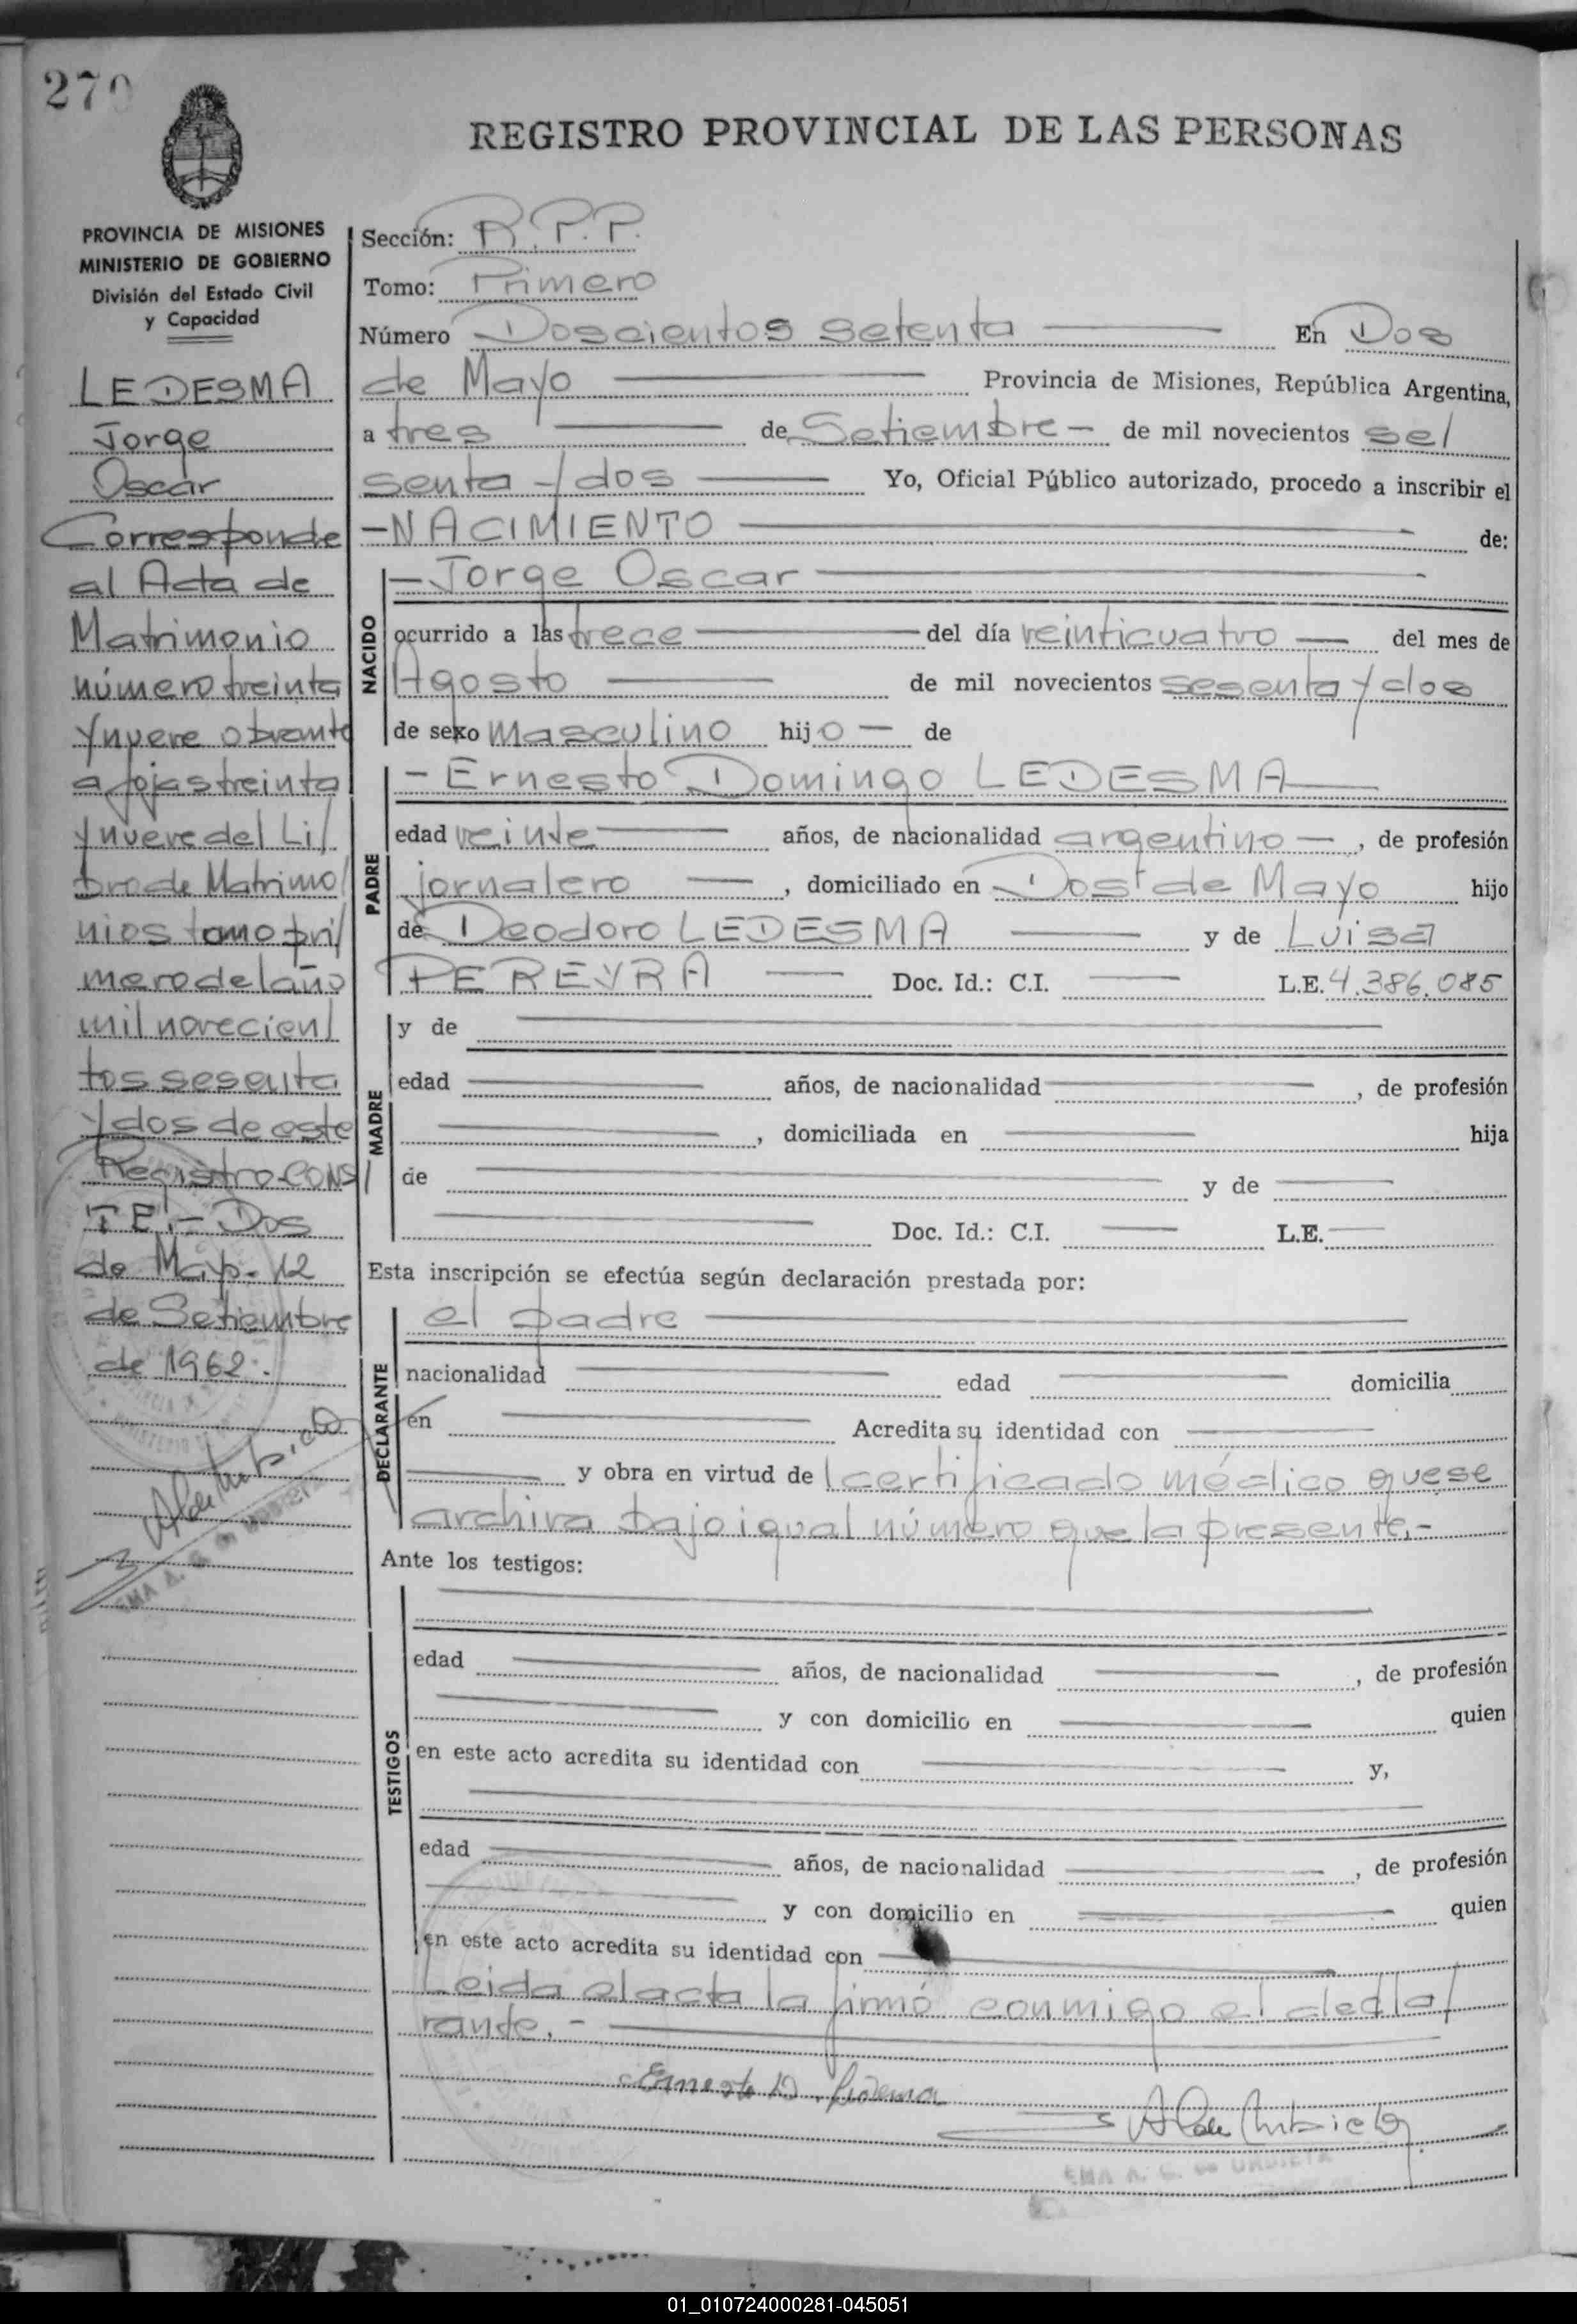 270
REGISTRO PROVINCIAL DE LAS PERSONAS
PROVINCIA DE MISIONES
MINISTERIO DE GOBIERNO
División del Estado Civil
y Capacidad
LEDESMA
Jorge
Oscar
Corresponde
al Acta de
Matrimonio
número treinta
y nueve obrante
a fojas treinta
y nueve del Li/
bro de Matrimo/
nios tomo pri/
mero del año
mil novecien/
tos sesenta
y dos de este
Registro-CONS/
TE.- Dos
de Mayo- 12
de Setiembre
de 1962.
Sección: R.P.P.
Tomo: Primero
Número Doscientos setenta En Dos
de Mayo Provincia de Misiones, República Argentina,
a tres de Setiembre - de mil novecientos se/
senta y dos Yo, Oficial Público autorizado, procedo a inscribir el
-NACIMIENTO de:
NACIDO
-Jorge Oscar
ocurrido a las trece del día veinticuatro del mes de
Agosto de mil novecientos sesenta y dos
de sexo masculino hijo - de
PADRE
-Ernesto Domingo LEDESMA
edad veinte años, de nacionalidad argentino -, de profesión
jornalero, domiciliado en Dos de Mayo hijo
de Deodoro LEDESMA y de Luisa
PEREYRA Doc. Id.: C.I. L.E. 4.386.085
MADRE
y de
edad años, de nacionalidad, de profesión
, domiciliada en hija
de y de
Doc. Id.: C.I. L.E.
Esta inscripción se efectúa según declaración prestada por:
DECLARANTE
el padre
nacionalidad edad domicilia
en Acredita su identidad con
y obra en virtud de l certificado médico que se
archiva bajo igual número que la presente.-
Ante los testigos:
TESTIGOS
edad años, de nacionalidad, de profesión
y con domicilio en quien
en este acto acredita su identidad con y,
edad años, de nacionalidad, de profesión
y con domicilio en quien
en este acto acredita su identidad con
Leida el acta la firmó conmigo el decla/
rante.-
Ernesto D. Ledesma
EMA A. G. de URBIETA
01_010724000281-045051